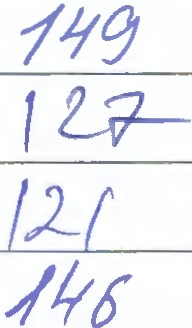 149
127
121
146